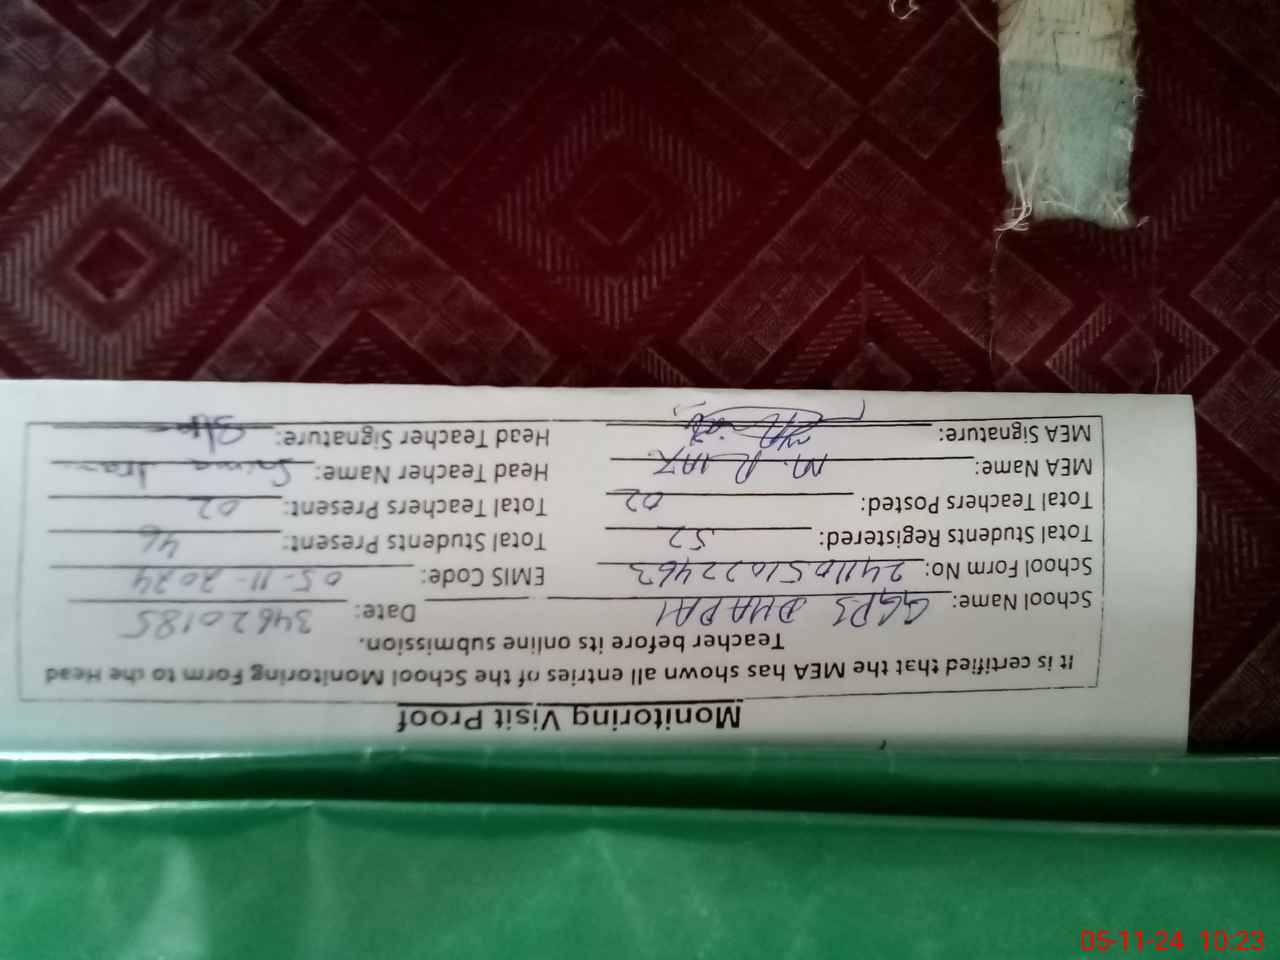 Monitoring Visit Proof
It is certified that the MEA has shown all entries of the School Monitoring Form to the Head
Teacher before its online submission.
School Name: GGPS DHAPAI Date: 34620185
School Form No: 2411051022463 EMIS Code: 05-11-2024
Total Students Registered: 52 Total Students Present: 46
Total Teachers Posted: 02 Total Teachers Present: 02
MEA Name: M. RIAZ Head Teacher Name: Saima
MEA Signature: Head Teacher Signature:
05-11-24 10:23